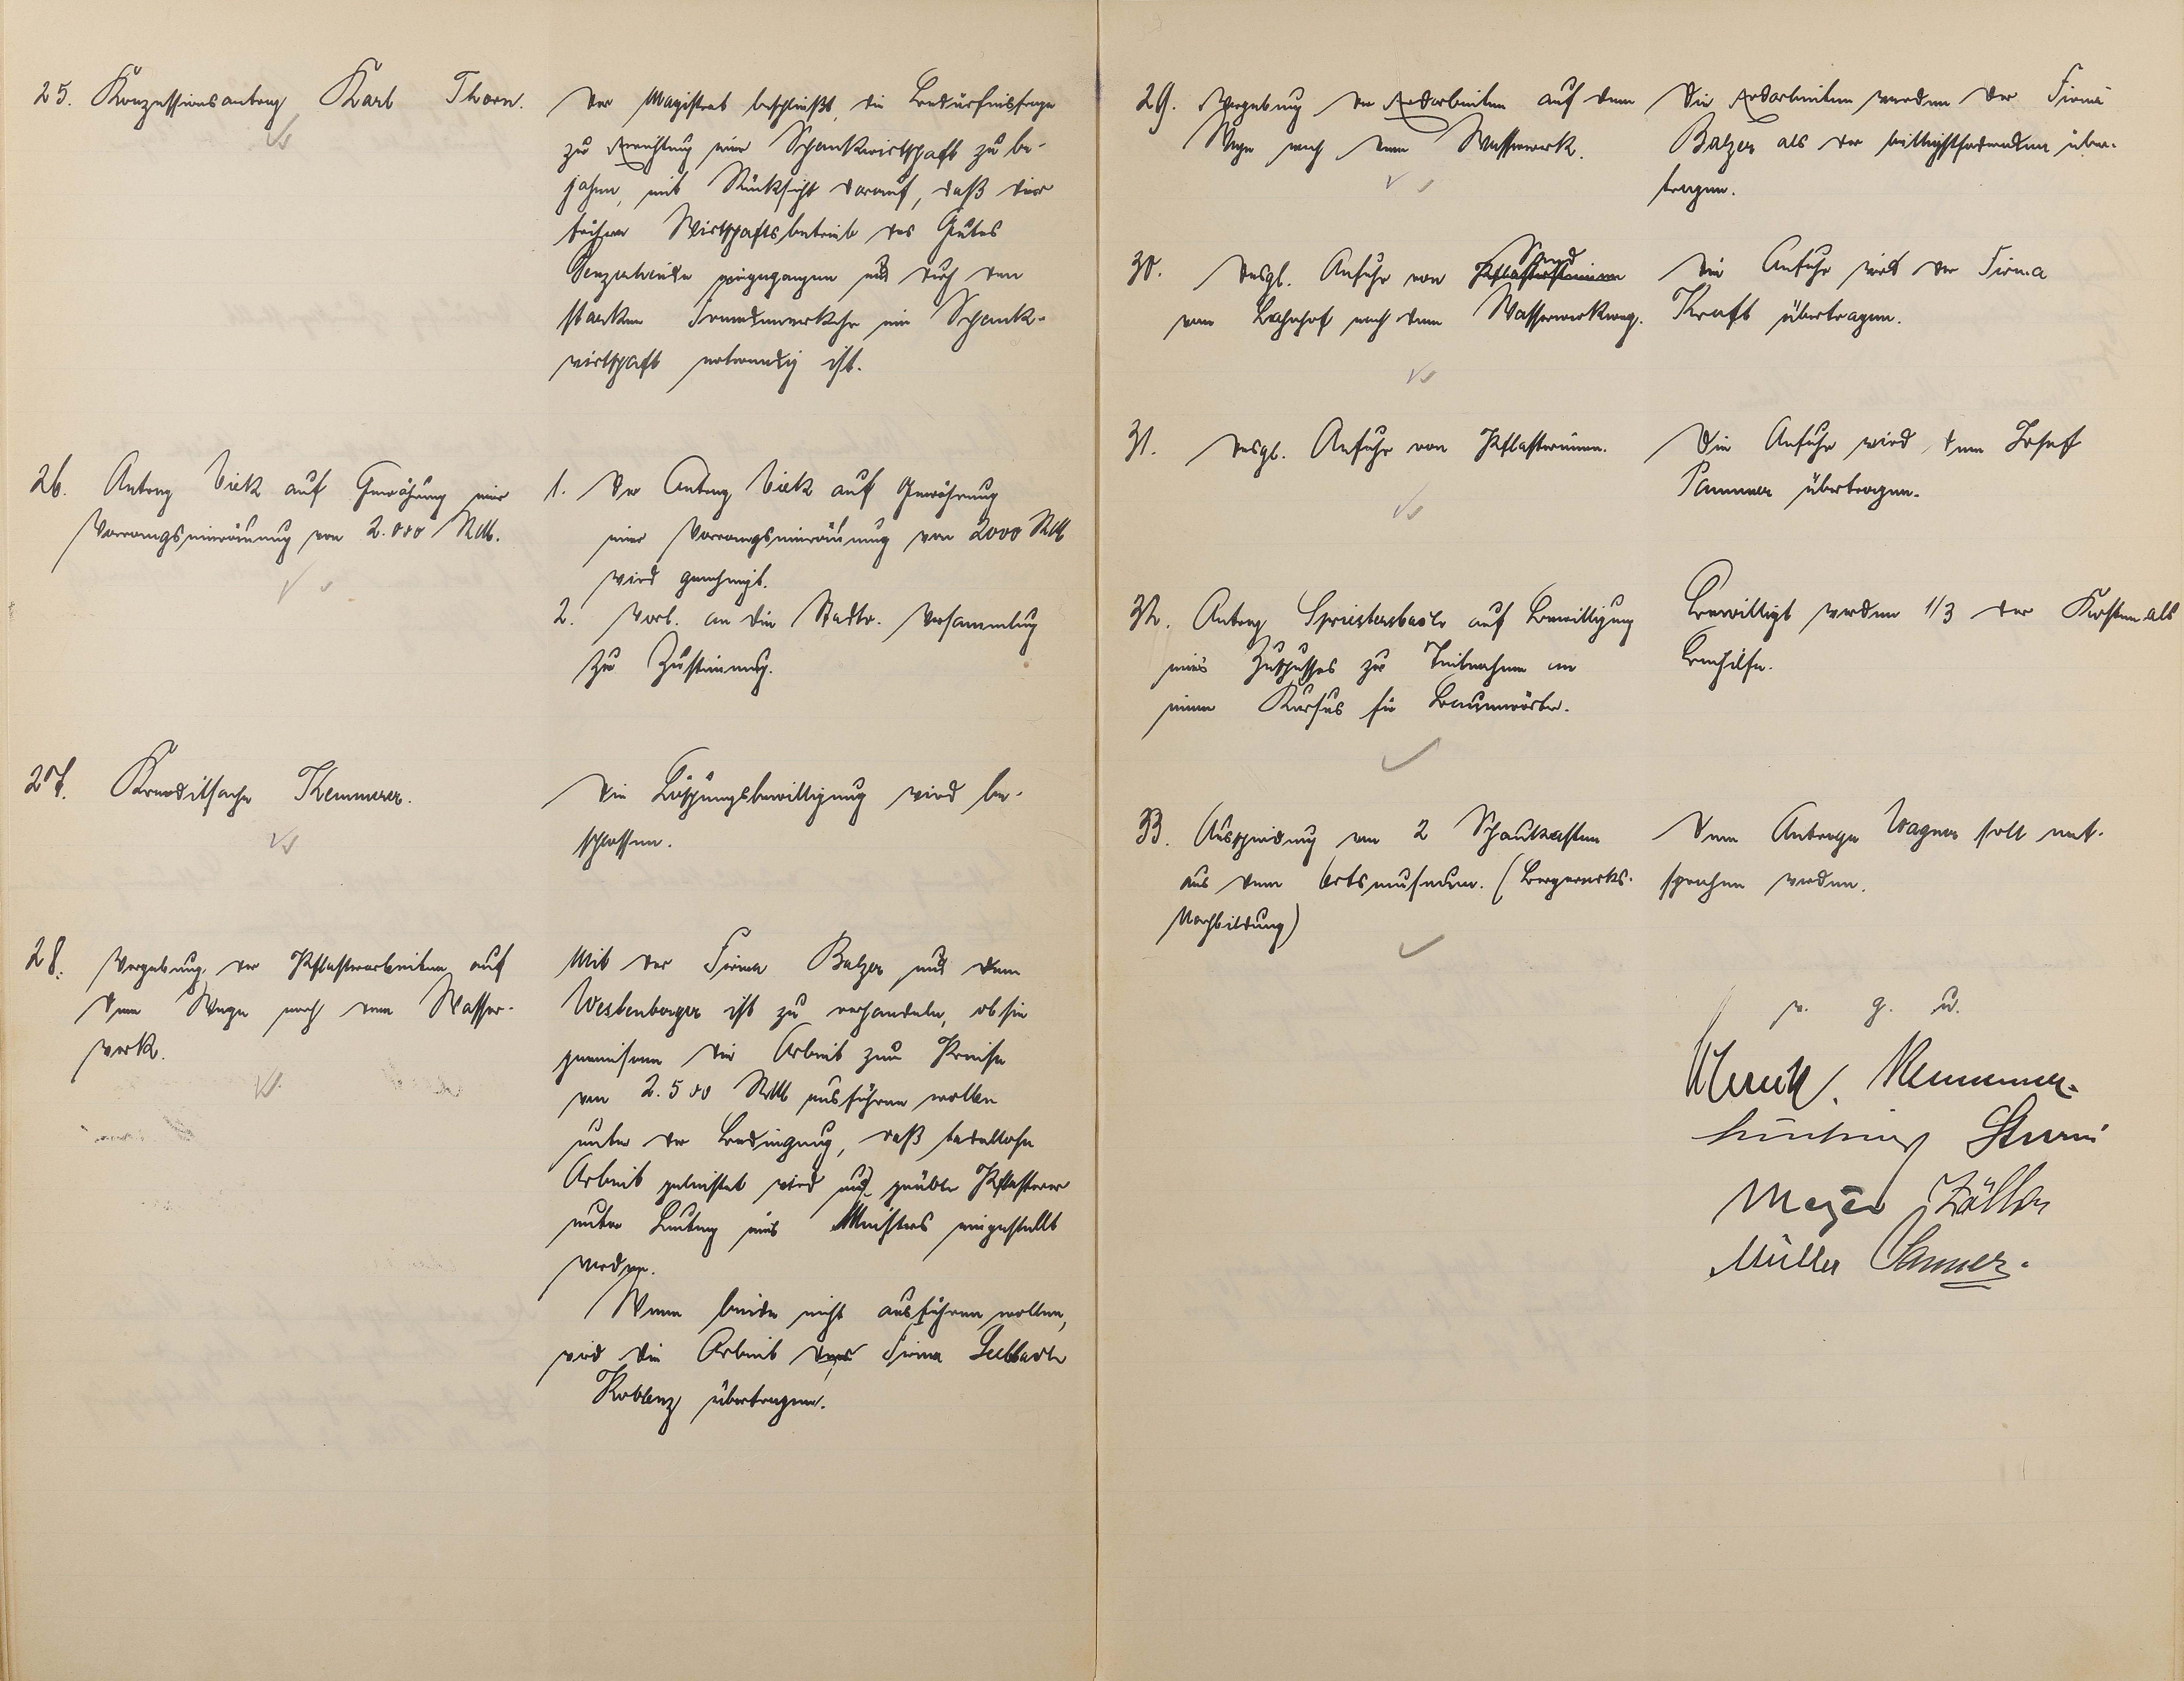 25. Konzessionsantrag Karl Thorn.
Der Magistrat beschließt, die Bedürfnisfrage
zur Errichtung einer Schankwirtschaft zu be-
jahen, mit Rücksicht darauf, daß der
frühere Wirtschaftsbetrieb des Gutes
eingegangen und durch den
starken Fremdenverkehr eine Schank-
wirtschaft notwendig ist.
26. Antrag Vietz auf Gewährung einer
Vorrangseinräumung von 2.000 RM.
1. Der Antrag Vietz auf Gewährung
einer Vorrangseinräumung von 2000 RM
wird genehmigt.
2. Vorl. an die Stadtv. Versammlung
zur Zustimmung.
27. Kreditsache Kemmerer.
Die Löschungsbewilligung wird be-
schlossen.
28. Vergebung der Pflasterarbeiten auf
dem Wege nach dem Wasser-
werk.
Mit der Firma Balzer und dem
Westenberger ist zu verhandeln, ob sie
gemeinsam die Arbeit zum Preise
von 2.500 RM ausführen wollen
unter der Bedingung, daß tadellose
Arbeit geleistet wird und geübte Pflasterer
unter Leitung eines Meisters eingestellt
werden.
Wenn beide nicht ausführen wollen,
wird die Arbeit der Firma
Koblenz übertragen.
29. Vergebung der Erdarbeiten auf dem
Wege nach dem Wasserwerk.
Die Erdarbeiten werden der Firma
Balzer als der billigstfordernden über-
tragen.
30. Desgl. Anfuhr von Pflastersteinen Sand
vom Bahnhof nach dem Wasserwerkweg.
Die Anfuhr wird der Firma
Kraft übertragen.
31. Desgl. Anfuhr von Pflastersteinen.
Die Anfuhr wird dem Josef
Pammer übertragen.
32. Antrag Spriestersbach auf Bewilligung
eines Zuschusses zur Teilnahme an
einem Kursus für Baumwärter.
Bewilligt werden 1/3 der Kosten als
Beihilfe.
33. Ausscheidung von 2 Schaukasten
aus dem Ortsmuseum. (Bergwerks-
Nachbildung)
Dem Antrage Wagner soll ent-
sprochen werden.
v. g. u.
Sturm
Meyer Zöller
Müller